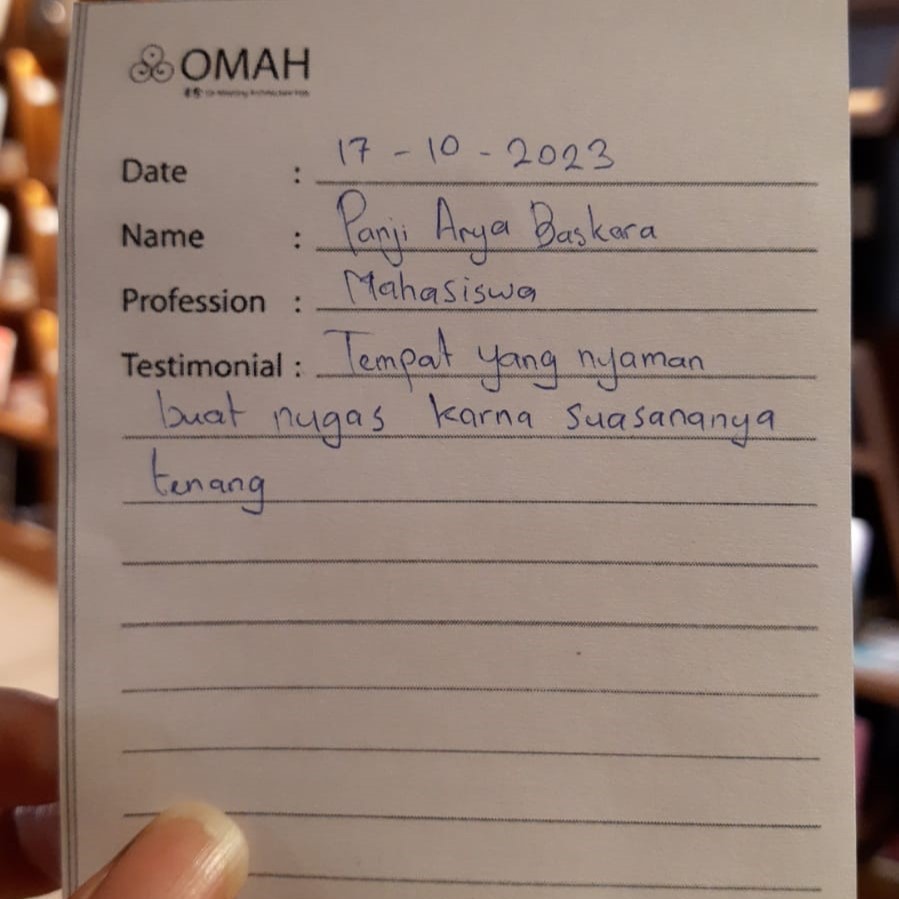 OMAH
Date : 17 - 10 - 2023
Name : Panji Arya Baskara
Profession : Mahasiswa
Testimonial : Tempat yang nyaman
buat nugas karna suasananya
tenang